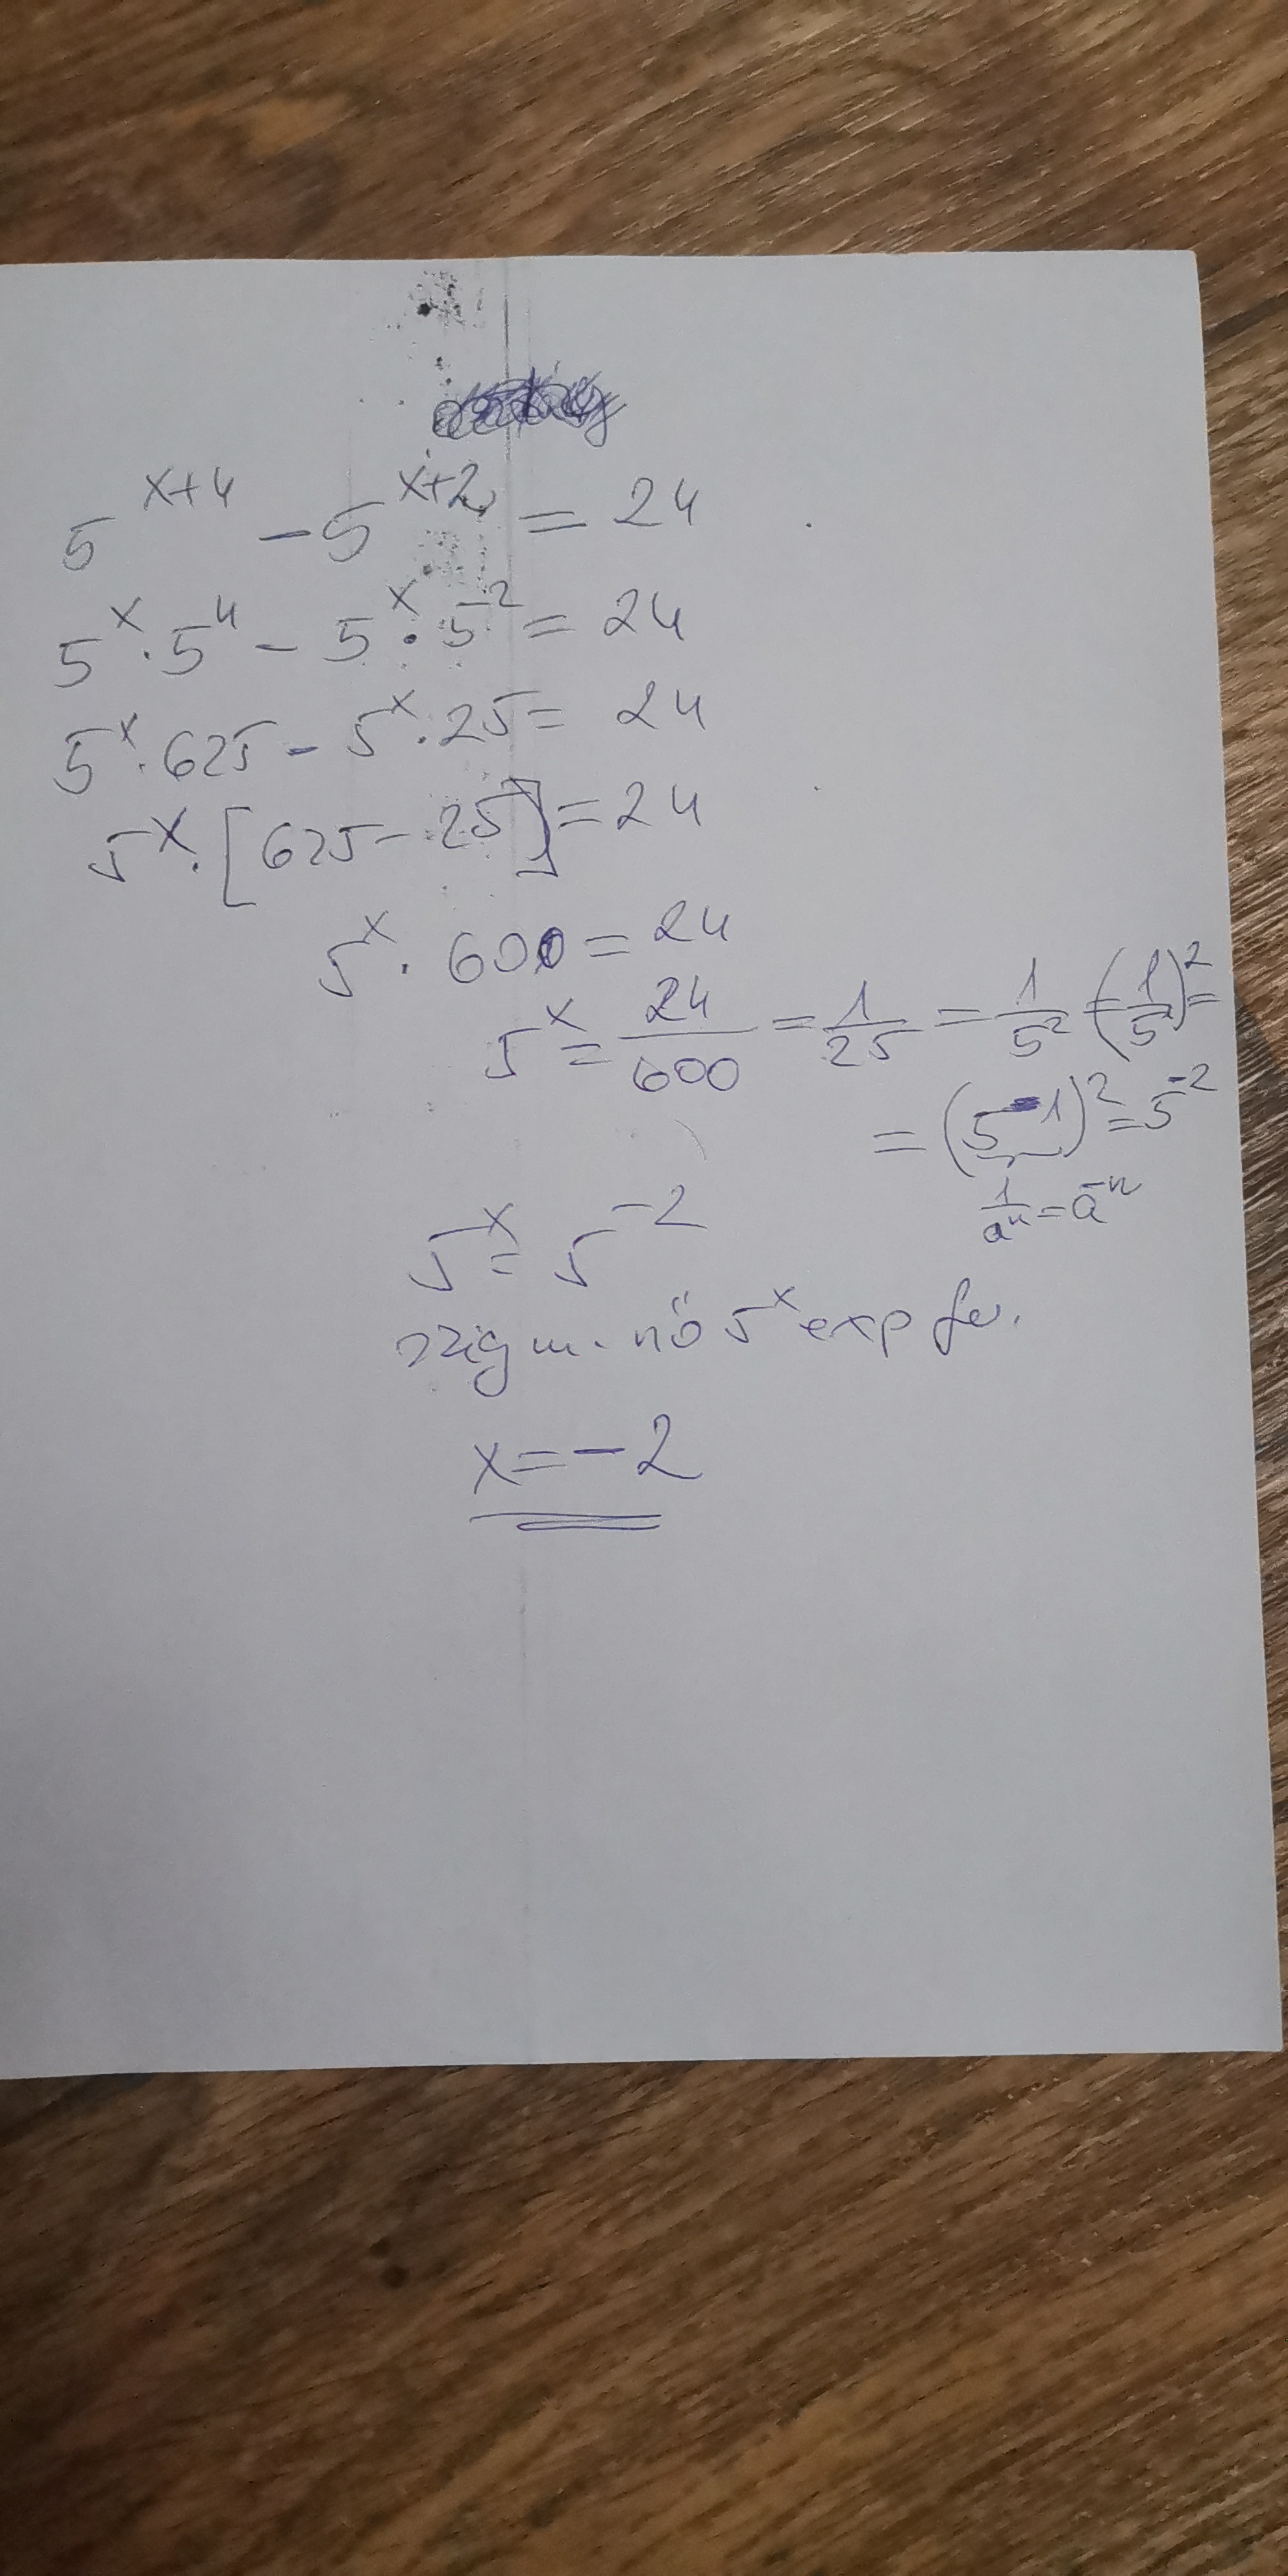 5^(x+4) - 5^(x+2) = 24
5^x · 5^4 - 5^x · 5^2 = 24
5^x · 625 - 5^x · 25 = 24
5^x · [625 - 25] = 24
5^x · 600 = 24
5^x = 24/600 = 1/25 = 1/5^2 = (1/5)^2 =
= (5^-1)^2 = 5^-2
1/a^n = a^-n
5^x = 5^-2
szig m. nő 5^x exp fv.
x = -2